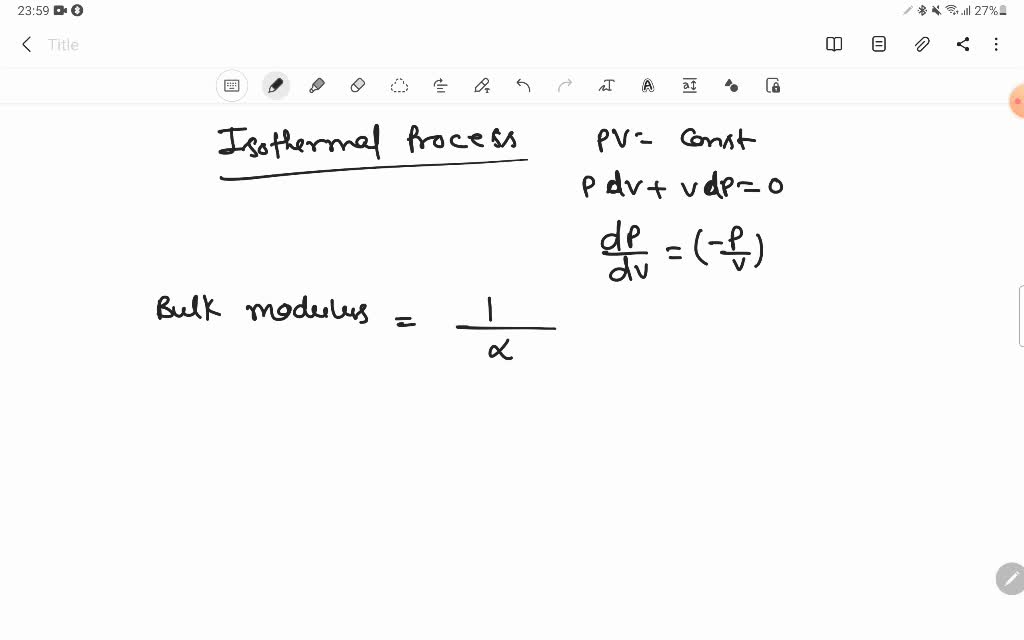 23:59
27%
Title
Isothermal Process
PV = Const
P dv + v dp = 0
dP/dv = (-P/v)
Bulk modulus = 1/α